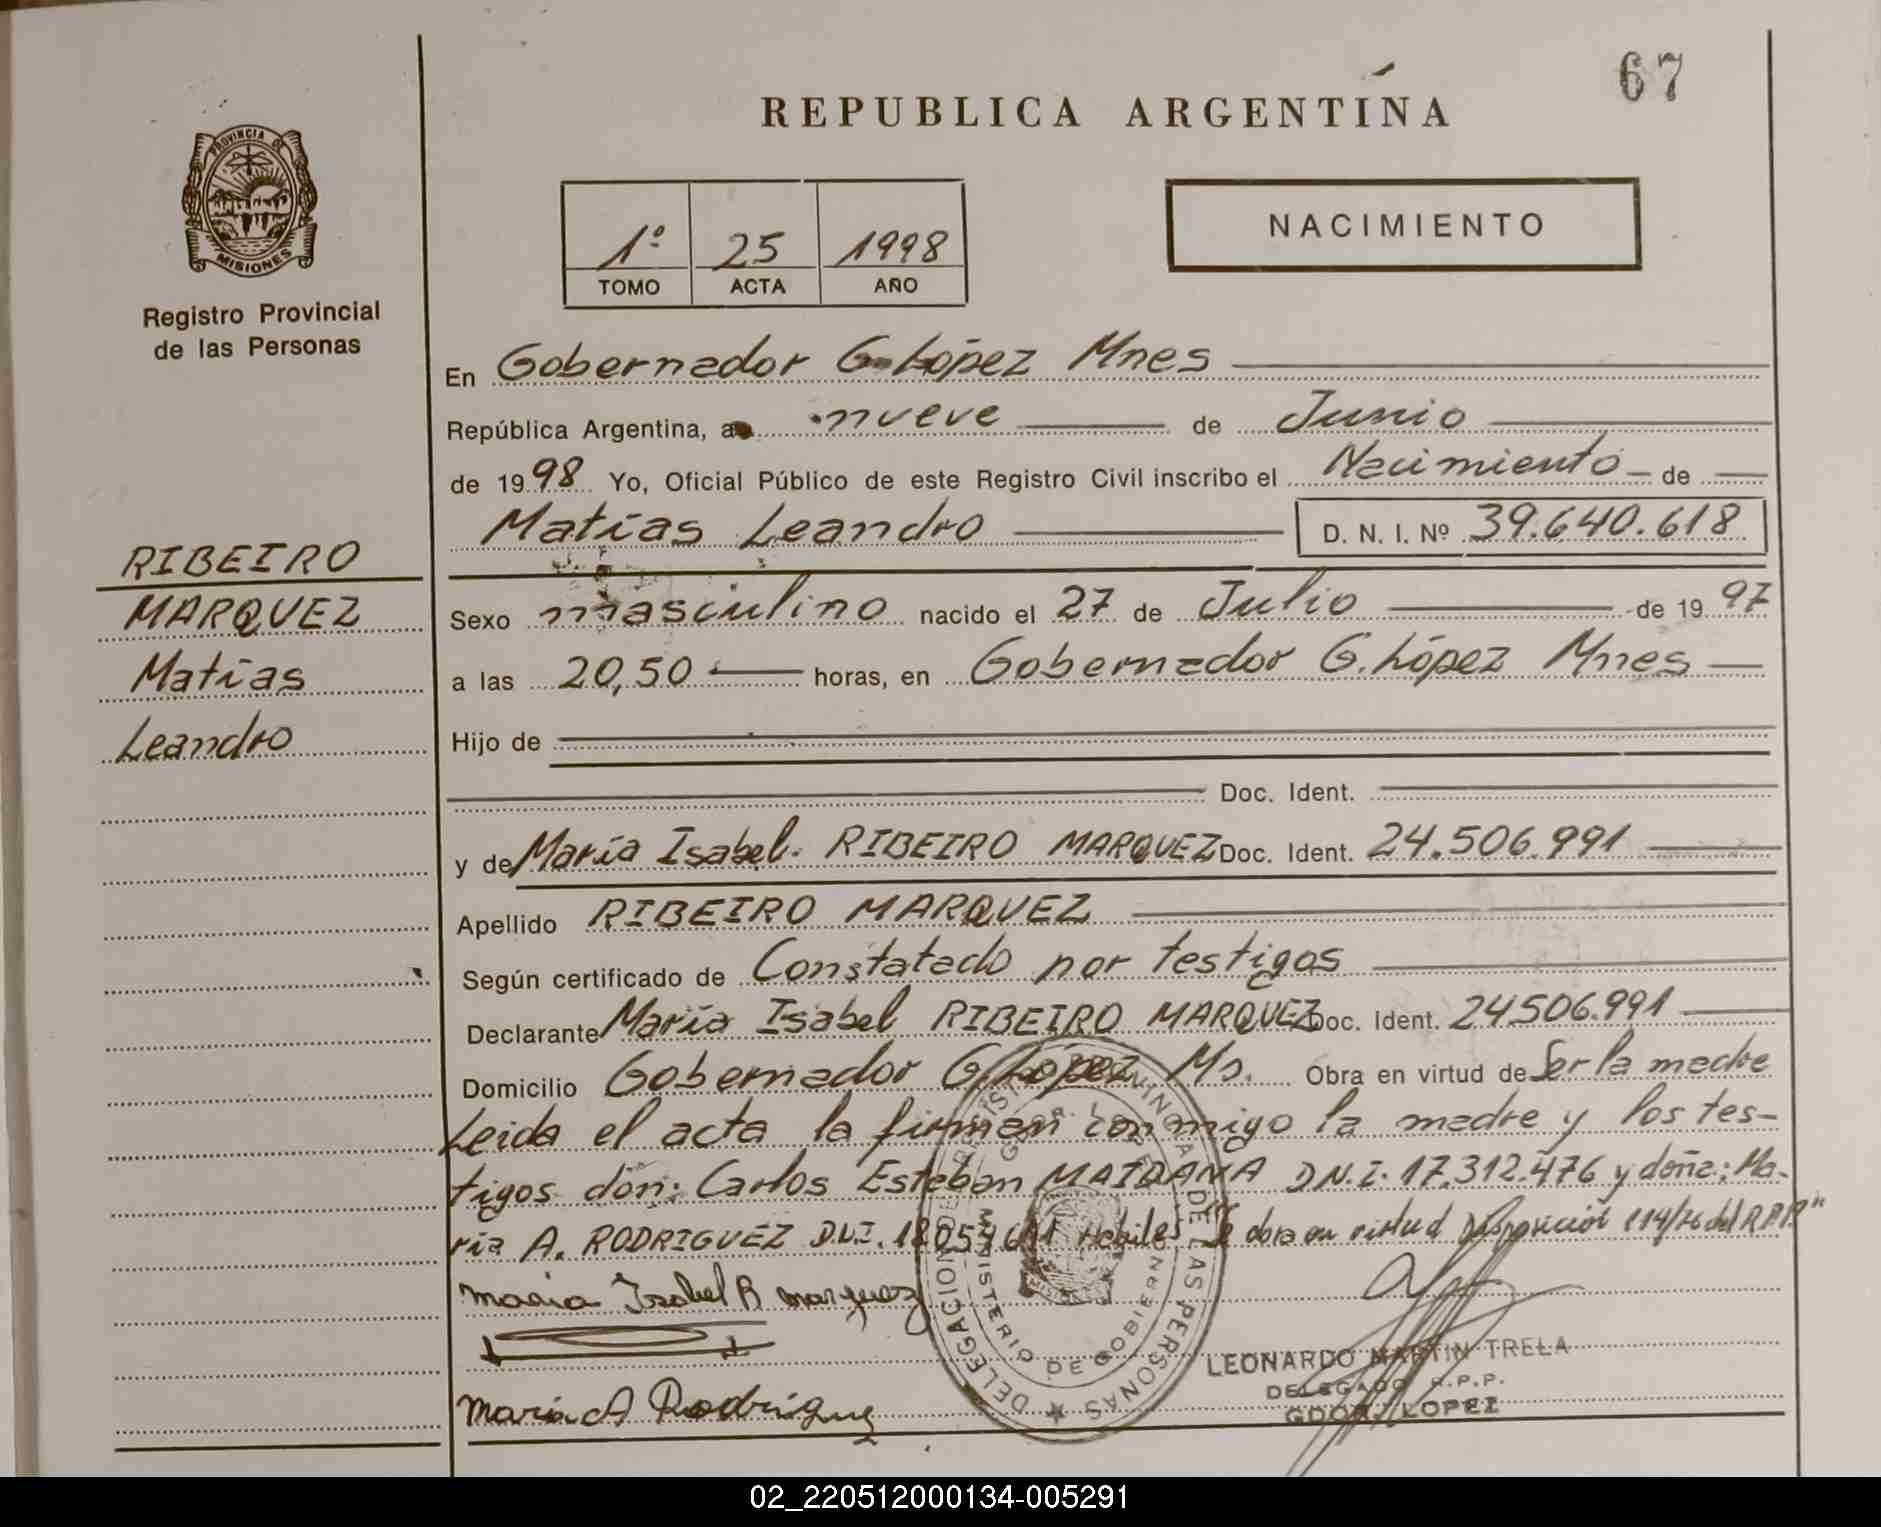 67
REPUBLICA ARGENTINA
PROVINCIA DE
MISIONES
Registro Provincial
de las Personas
1º 25 1998
TOMO ACTA AÑO
NACIMIENTO
En Gobernador G. López Mnes
República Argentina, a nueve de Junio
de 1998 Yo, Oficial Público de este Registro Civil inscribo el Nacimiento de
Matías Leandro D. N. I. Nº 39.640.618
RIBEIRO
MARQUEZ
Matías
Leandro
Sexo masculino nacido el 27 de Julio de 1997
a las 20,50 horas, en Gobernador G. López Mnes
Hijo de
Doc. Ident.
y de María Isabel. RIBEIRO MARQUEZ Doc. Ident. 24.506.991
Apellido RIBEIRO MARQUEZ
Según certificado de Constatado por testigos
Declarante María Isabel RIBEIRO MARQUEZ Doc. Ident. 24506.991
Domicilio Gobernador G. López Ms. Obra en virtud de Ser la madre
Leida el acta la firman conmigo la madre y los tes-
tigos don: Carlos Esteban MAIDANA D.N.I. 17.312.476 y doña: Ma-
ría A. RODRIGUEZ D.N.I. Habiles Se obra en virtud Disposición 114/76 del R.P.P.
Maria Isabel R marquez
Maria A Rodriguez
DELEGACION DE REGISTRO PROVINCIAL DE LAS PERSONAS
GDOR. LOPEZ
MINISTERIO DE GOBIERNO
LEONARDO MARTIN TRELA
DELEGADO R.P.P.
GDOR. LOPEZ
02_220512000134-005291